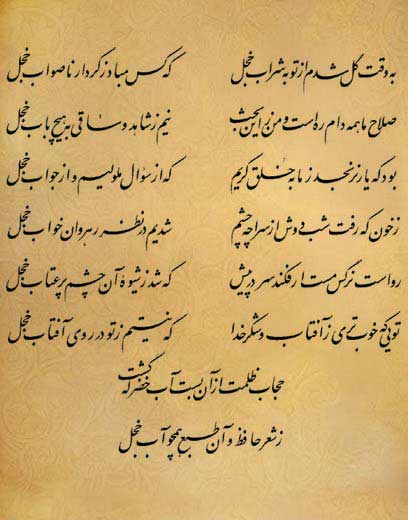 به وقت گل شدم از توبه شراب خجل که کس مباد ز کردار ناصواب خجل
صلاح ما همه دام ره است و من زین بحث نیم ز شاهد و ساقی به هیچ باب خجل
بود که یار نرنجد ز ما به خلق کریم که از سؤال ملولیم و از جواب خجل
ز خون که رفت شب دوش از سراچه چشم شدیم در نظر رهروان خواب خجل
رواست نرگس مست ار فکند سر در پیش که شد ز شیوهٔ آن چشم پر عتاب خجل
تویی که خوب‌تری ز آفتاب و شکر خدا که نیستم ز تو در روی آفتاب خجل
حجاب ظلمت از آن بست آب خضر که گشت
ز شعر حافظ و آن طبع همچو آب خجل